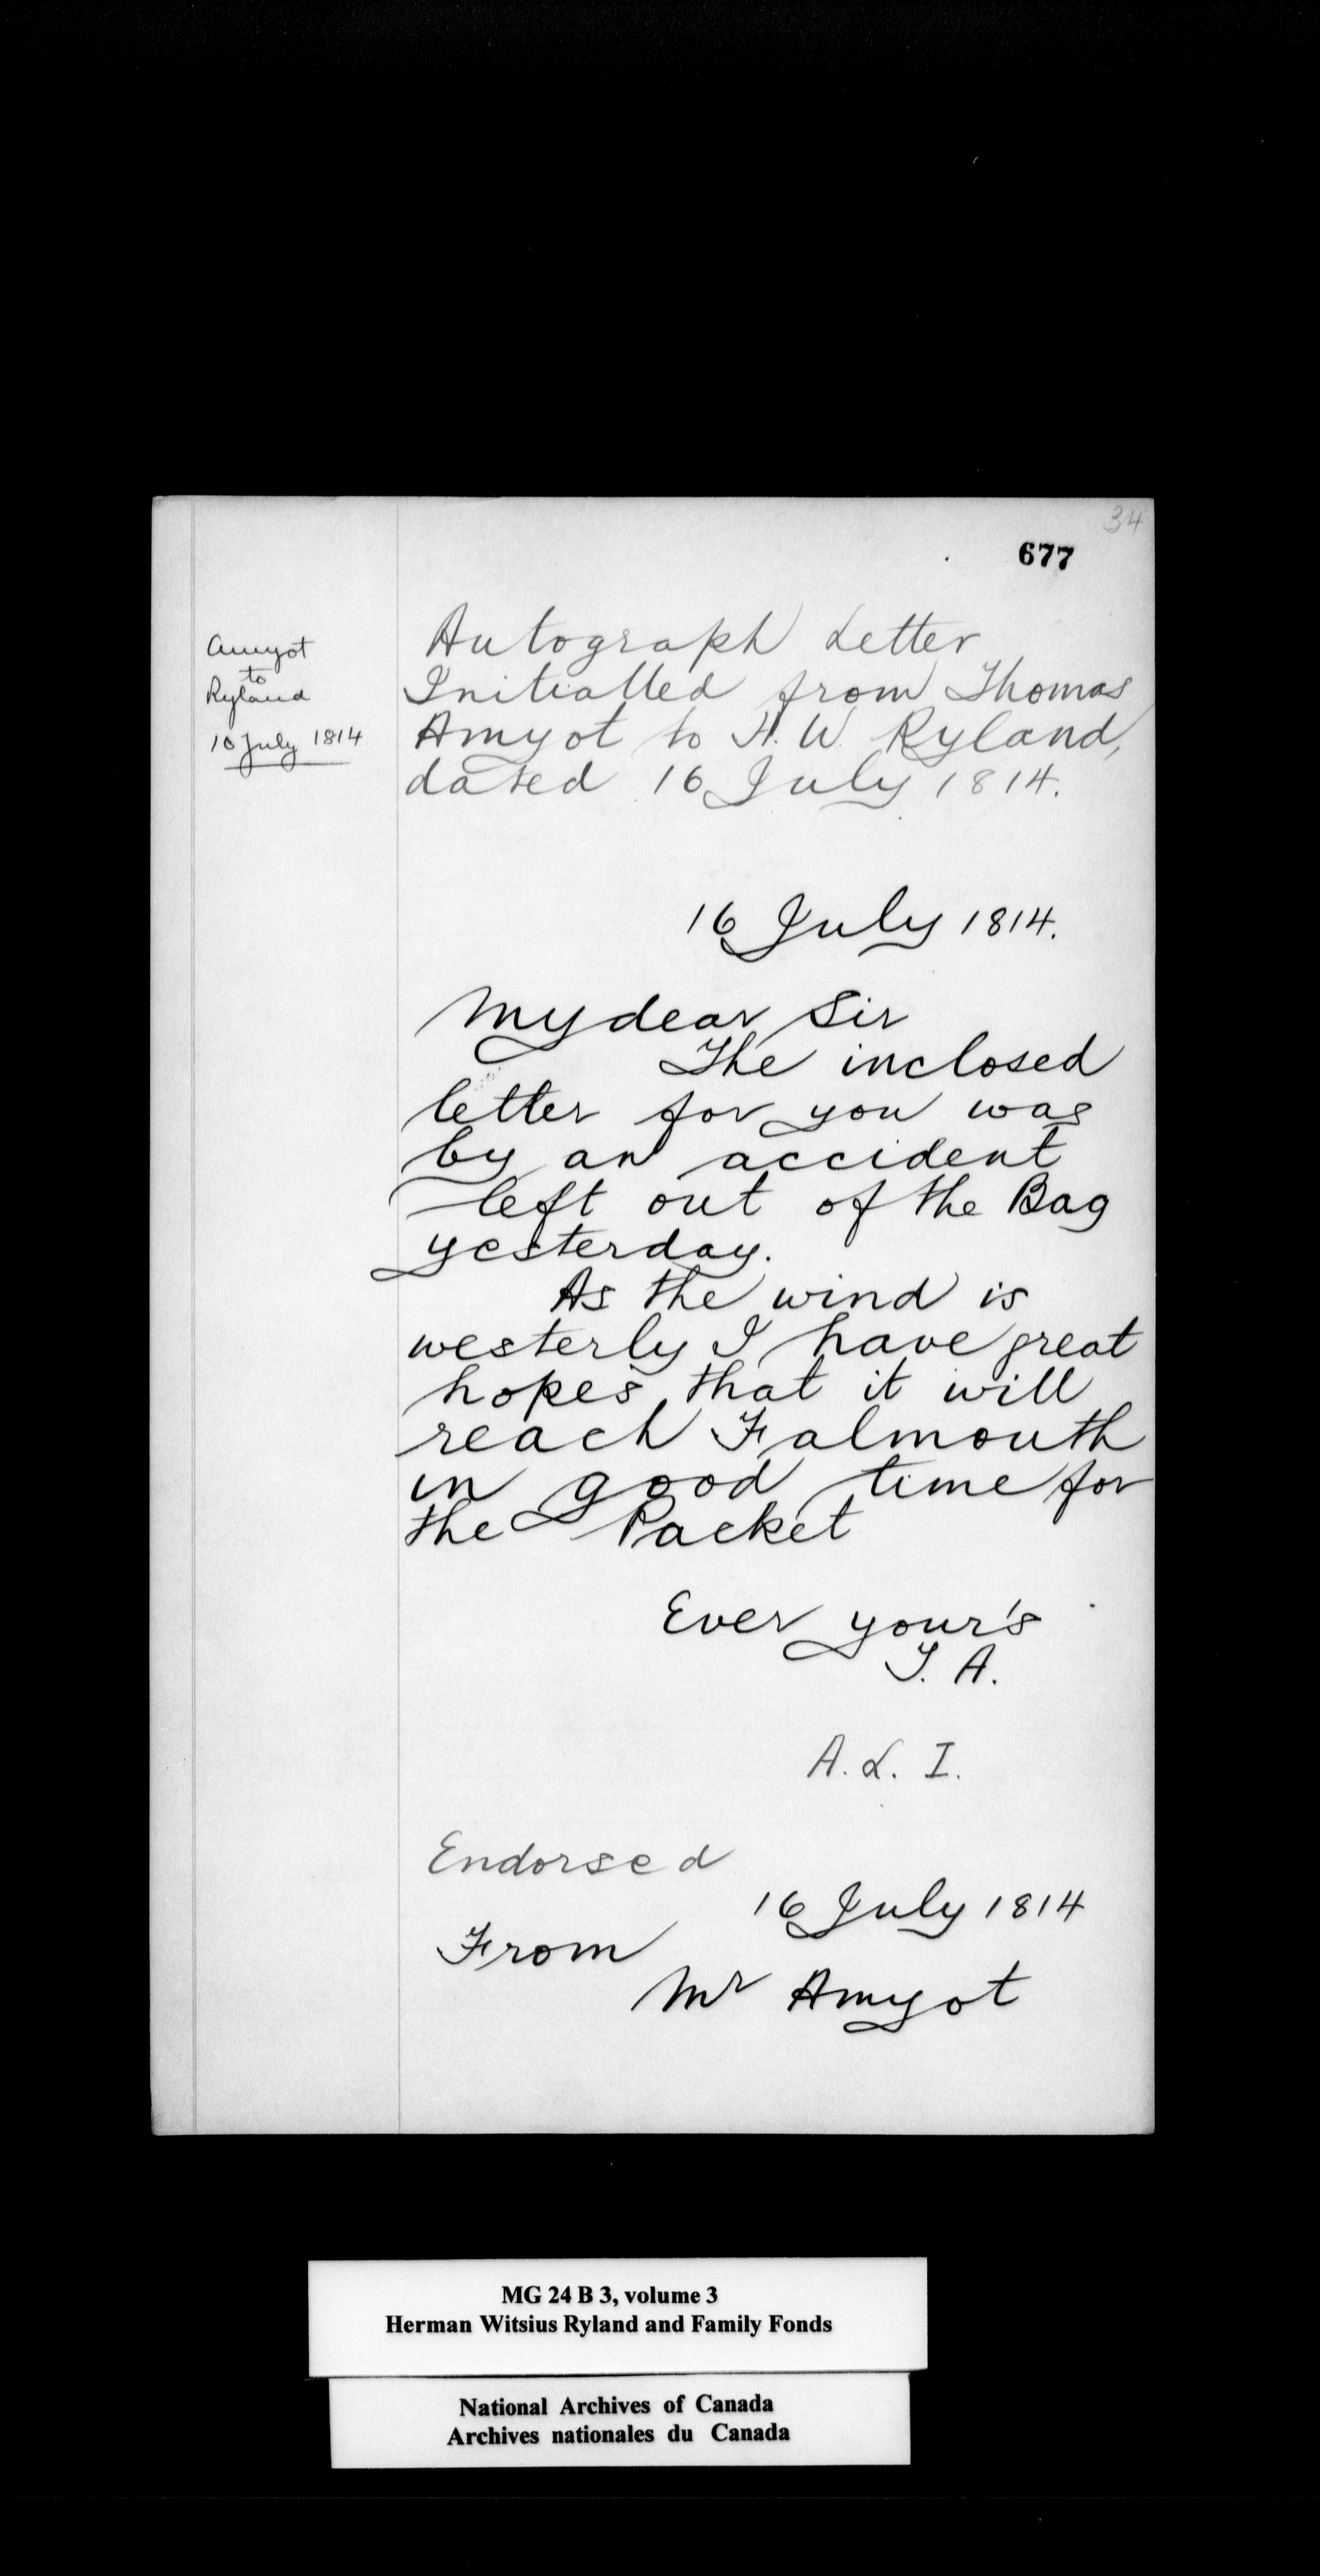 34
677
Amyot
to
Ryland
16 July 1814
Autograph Letter
Initialled from Thomas
Amyot to H. W. Ryland,
dated 16 July 1814.
16 July 1814.
My dear Sir
The inclosed
letter for you was
by an accident
left out of the Bag
yesterday.
As the wind is
westerly I have great
hopes that it will
reach Falmouth
in good time for
the Packet
Ever your's
T. A.
A. L. I.
Endorsed
16 July 1814
From
Mr Amyot
MG 24 B 3, volume 3
Herman Witsius Ryland and Family Fonds
National Archives of Canada
Archives nationales du Canada